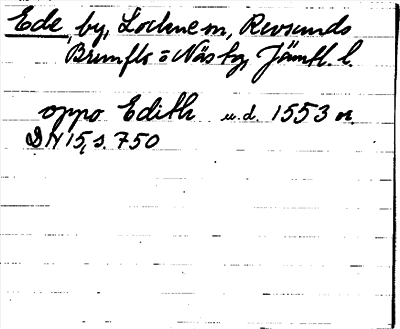 Ede, by, Lockne sn, Revsunds
Brunflo o Näs tg, Jämtl. l.
oppo Edith u.d. 1553 or.
DN 15, s. 750